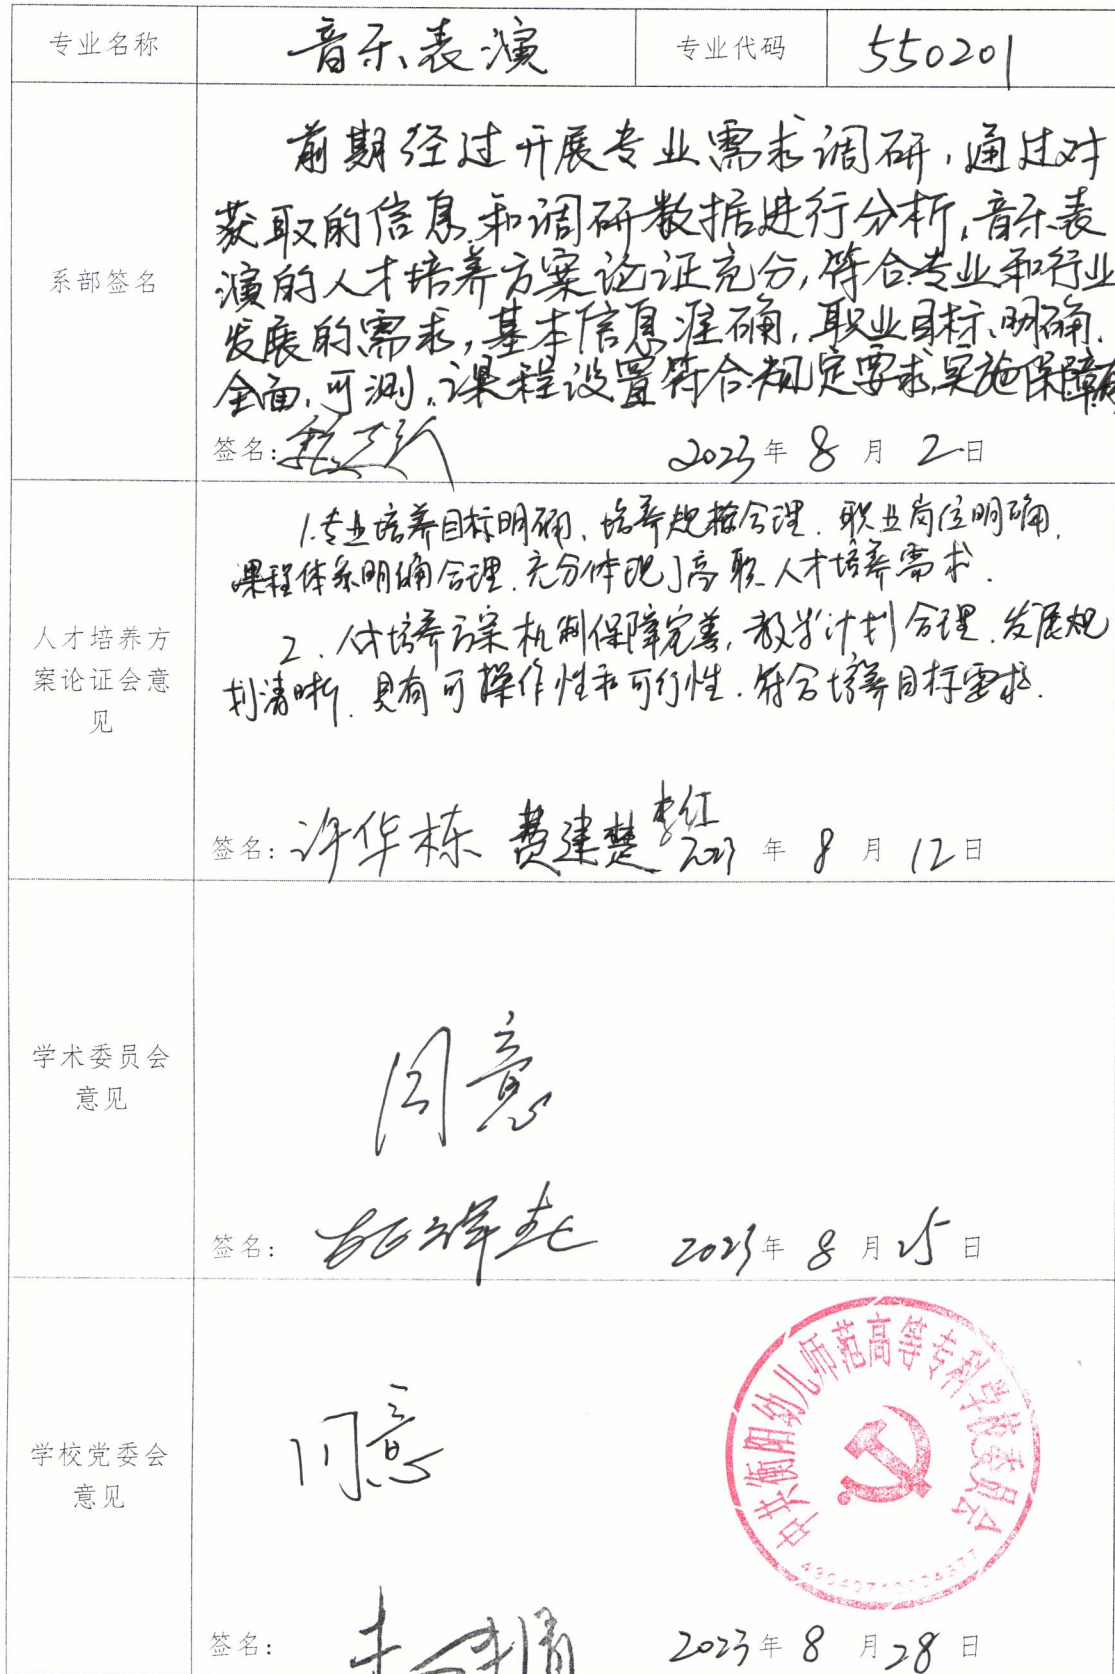 专业名称 音乐表演 专业代码 550201
前期经过开展专业需求调研，通过对
获取的信息和调研数据进行分析，音乐表
系部签名
演的人才培养方案论证充分，符合专业和行业
发展的需求，基本信息准确，职业目标明确、
全面、可测，课程设置符合规定要求，实施保障有
签名： 2023年8月2日
1.专业培养目标明确，培养规格合理，职业岗位明确，
课程体系明确合理，充分体现了高职人才培养需求。
人才培养方
案论证会意
见
2、人才培养方案机制保障完善，教学计划合理，发展规
划清晰，具有可操作性和可行性，符合培养目标需求。
签名：许华栋 费建楚 李红 2023年8月12日
学术委员会
意见
同意
签名： 2023年8月25日
学校党委会
意见
同意
中共衡阳幼儿师范高等专科学校委员会
签名： 2023年8月28日